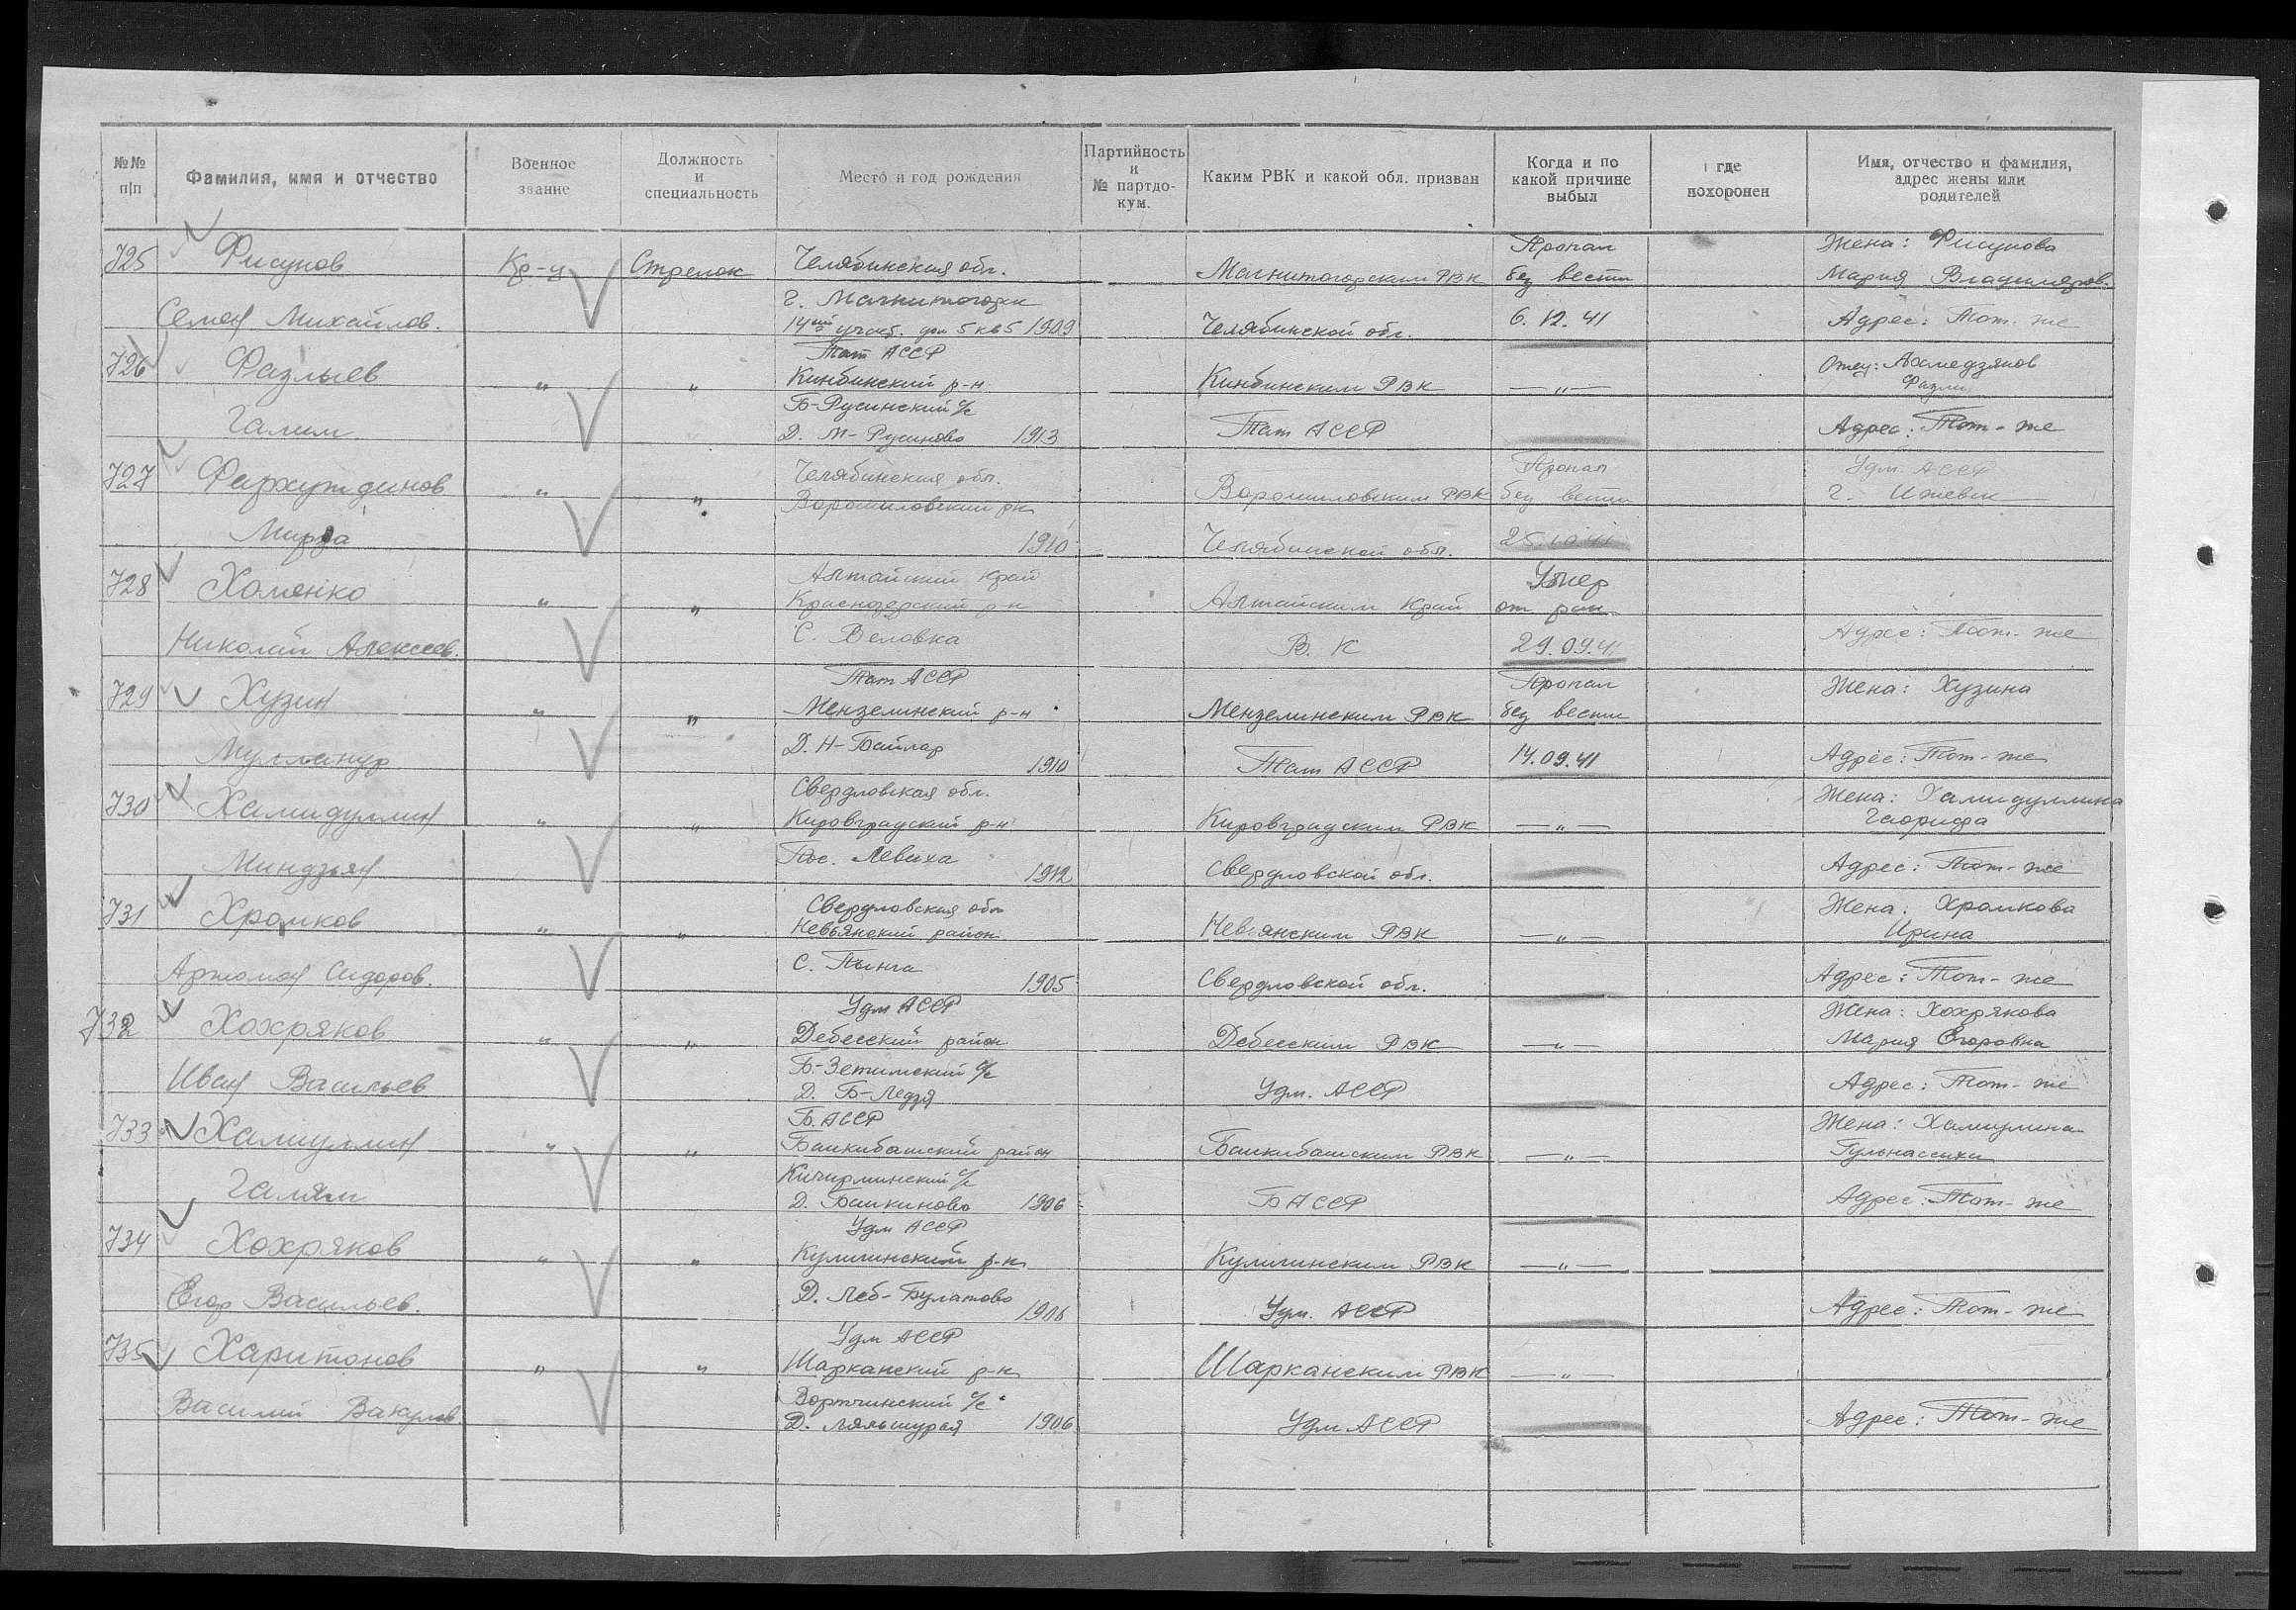 №№ п/п
Фамилия, имя и отчество
Военное звание
Должность и специальность
Место и год рождения
Партийность и № партдокум.
Каким РВК и какой обл. призван
Когда и по какой причине выбыл
где похоронен
Имя, отчество и фамилия, адрес жены или родителей
725 Фисунов Кр-ц Стрелок Челябинская обл. Магнитогорским РВК Пропал без вести Жена: Фисунова Мария Владимиров.
Семен Михайлов. г. Магнитогорск 14ый участ. дом 5 кв 5 1909 Челябинской обл. 6.12.41 Адрес: Тот-же
726 Фазлыев " " Тат АССР Кинбинский р-н Кинбинским РВК —"— Отец: Ахмедзянов Фазли
Галим Б-Русинский с/с Д. М-Русиново 1913 Тат АССР Адрес: Тот-же
727 Фархутдинов " " Челябинская обл. Ворошиловский р-н Ворошиловским РВК Пропал без вести Удм. АССР г. Ижевск
Мирза 1910 Челябинской обл. 25.10.41
728 Хоменко " " Алтайский край Краснозерский р-н Алтайским край Умер от ран
Николай Алексеев. С. Веловка В. К 29.09.41 Адрес: Тот-же
729 Хузин " " Тат АССР Мензелинский р-н Мензелинским РВК Пропал без вести Жена: Хузина
Мулланур Д. Н-Байлар 1910 Тат АССР 14.09.41 Адрес: Тот-же
730 Хамидуллин " " Свердловская обл. Кировградский р-н Кировградским РВК —"— Жена: Хамидуллина
Миндзян Пос. Левиха 1912 Свердловской обл. Адрес: Тот-же
731 Хромков " " Свердловская обл Невьянский район Невьянским РВК —"— Жена: Хромкова Ирина
Артомон Сидоров. С. Таынга 1905 Свердловской обл. Адрес: Тот-же
732 Хохряков " " Удм АССР Дебесский район Дебесским РВК —"— Жена: Хохрякова Мария Егоровна
Иван Васильев Б-Зетимский с/с Д. Б-Ледзя Удм. АССР Адрес: Тот-же
733 Хамиуллин " " Б. АССР Башкибашский район Башкибашским РВК —"— Жена: Хамиулина
Галям Кичирминский с/с Д. Башкиново 1906 БАССР Адрес: Тот-же
734 Хохряков " " Удм АССР Кулигинский р-н Кулигинским РВК —"—
Егор Васильев. Д. Леб-Булатово 1906 Удм. АССР Адрес: Тот-же
735 Харитонов " " Удм АССР Шарканский р-н Шарканским РВК —"—
Василий Вакулов Вортчинский с/с Д. Ляльшурая 1906 Удм АССР Адрес: Тот-же